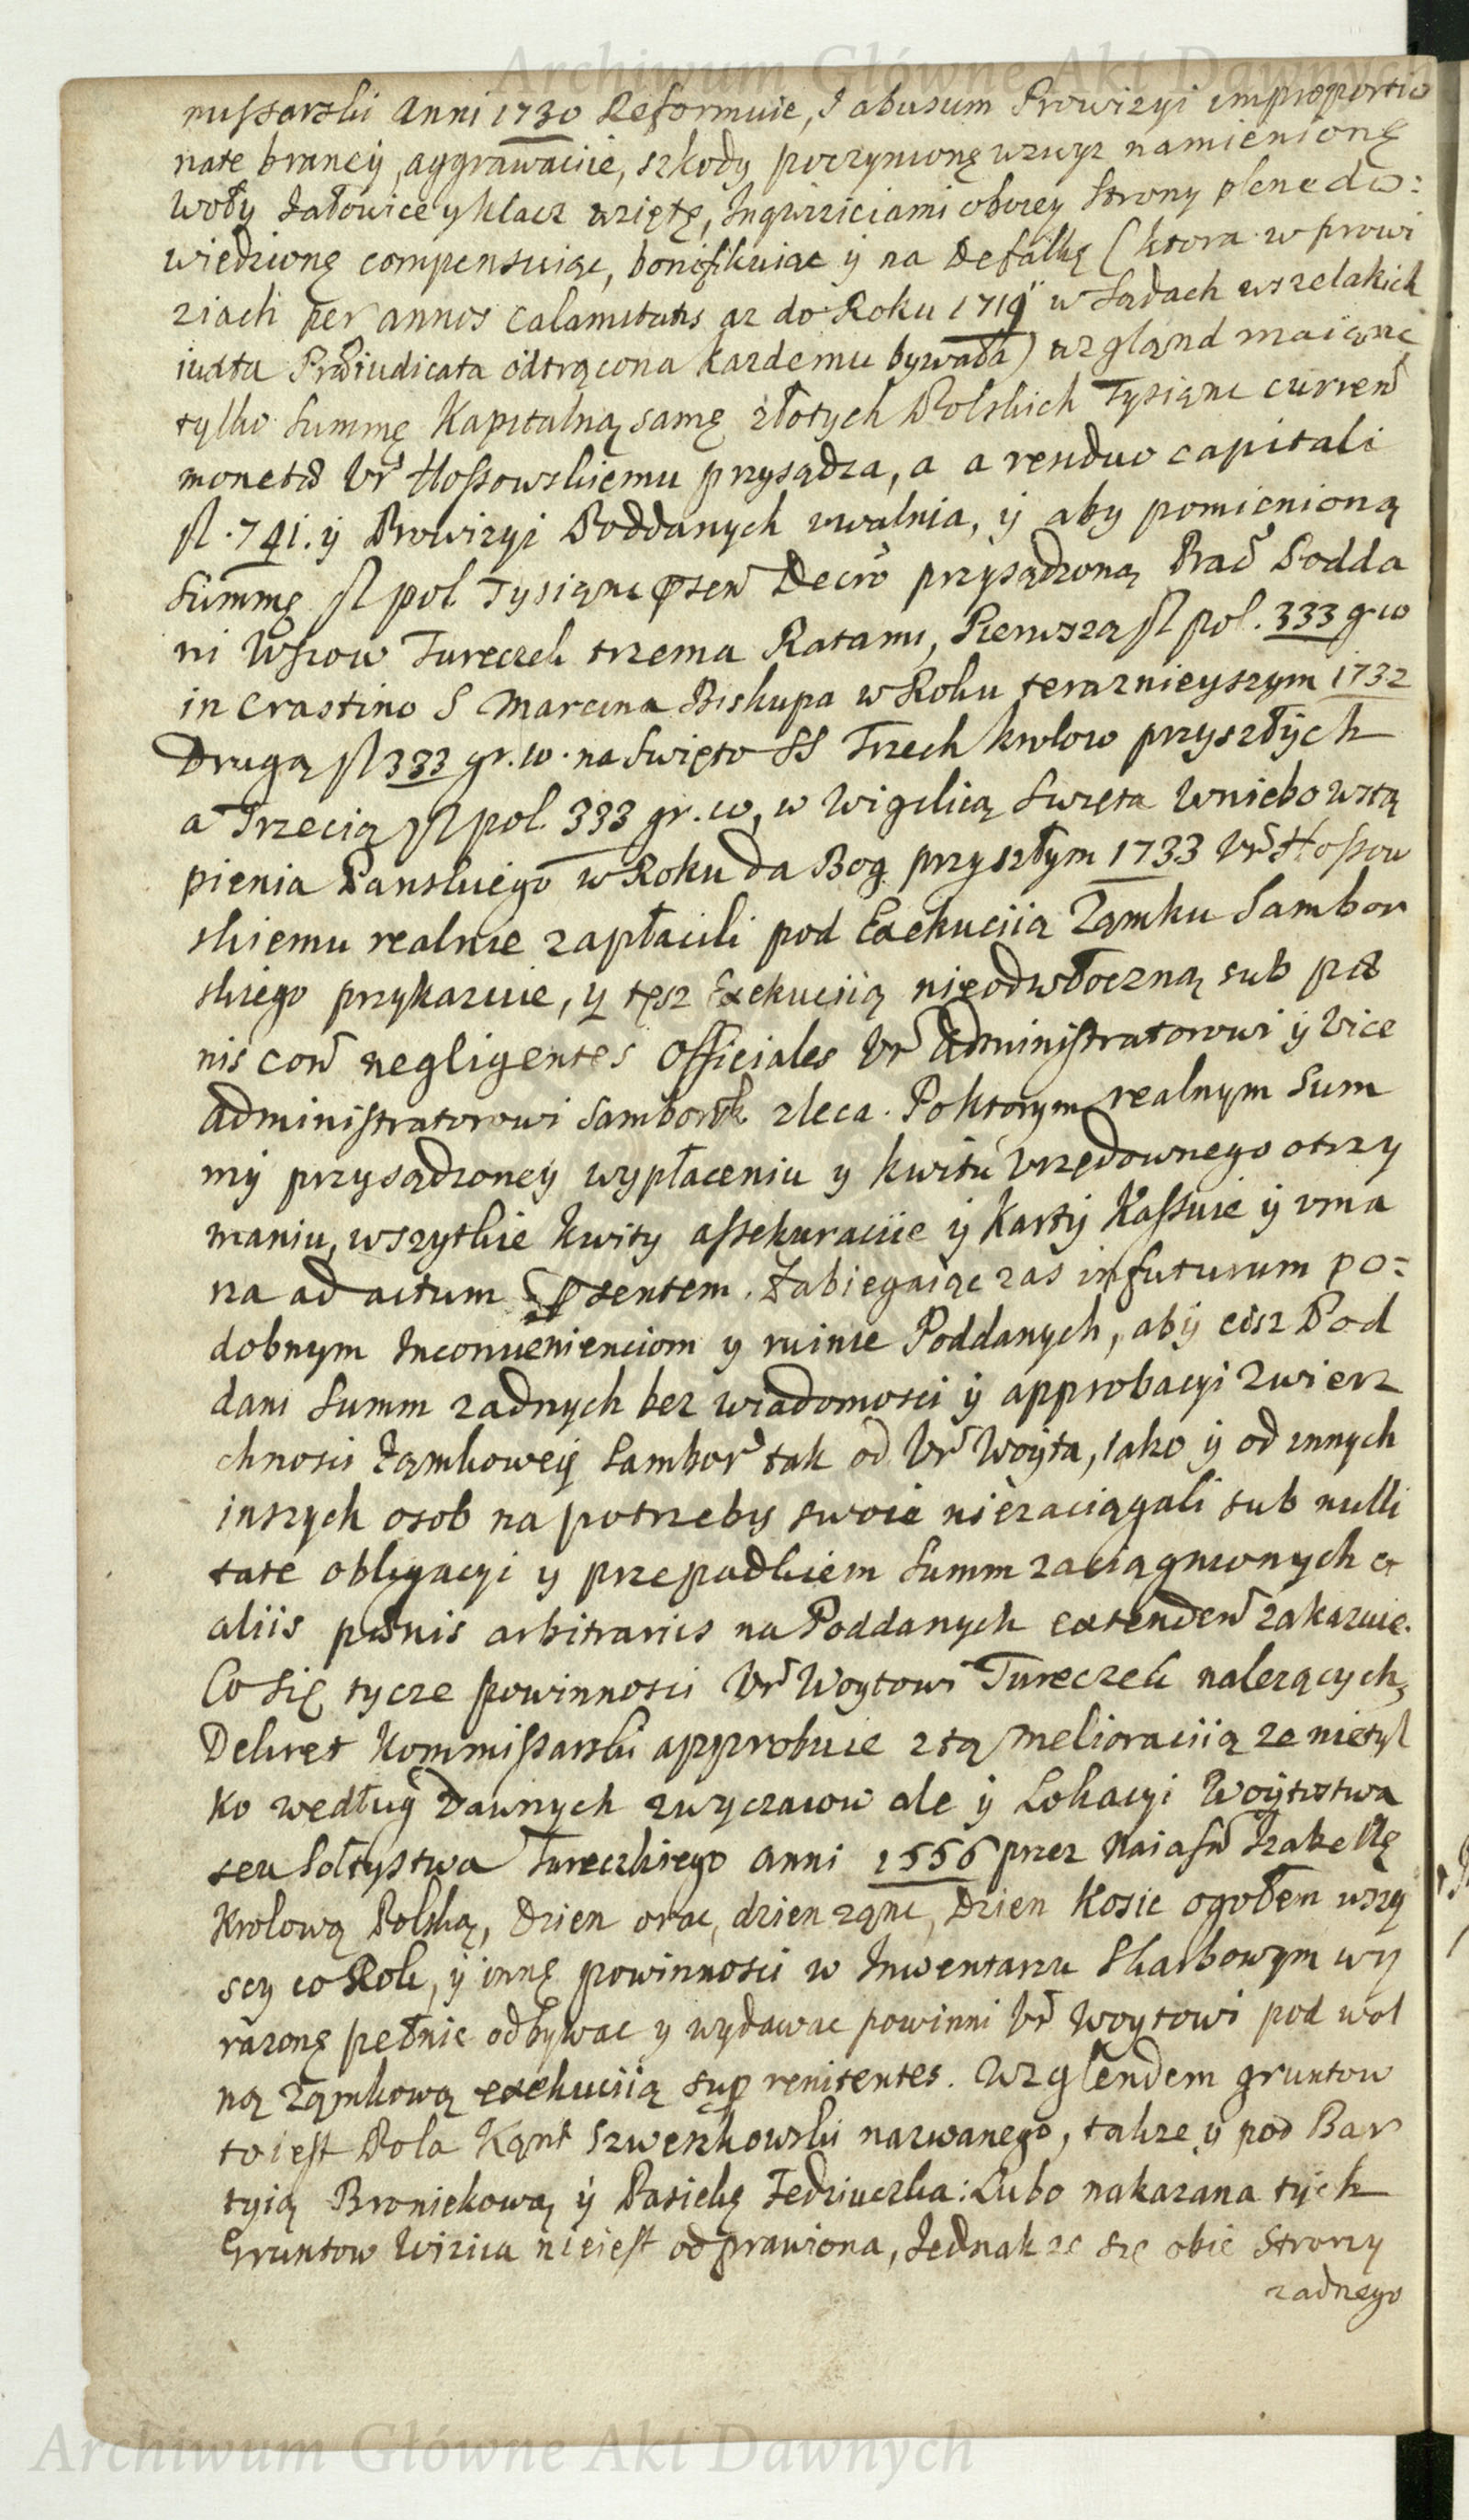 Archiwum Główne Akt Dawnych
missarski Anni 1730 Reformuie, J abusum Prowizyi improportio
nate braney, aggrawacije, szkody poczynionę wzwyz namienionę
Woły Jałowice y klacz wziętę, Inqwiziciami oborey Strony plene do:
wiedzionę compensuiąc, bonifikuiąc ÿ na Defalkę (ktora w prowi
ziach per annos calamitatis az do Roku 1719 w Sądach wszelakich
iuxta Præiudicata odtrącona kazdemu bywała) wzgląnd maiąnc
tylko Summę Kapitalną samę złotych Polskich Tysiąnc curren
moneta Ur Hoszowskiemu przysądza, a a renduo capitali
fl. 741. ÿ Prowizyi Poddanych uwalnia, ÿ aby pomienioną
Summę fl pol. Tysiąnc psen Decro przysądzoną Prac Podda
ni Wsiow Tureczek trzema Ratami, Pierwszą fl pol. 333 gr 10
in Crastino S Marcina Biskupa w Roku terazniejszym 1732
Drugą fl 333 gr. 10. na Swięto SS Trzech krolow przyszłÿch
a Trzecią fl pol. 333 gr. 10, w Wigilią Swięta Wniebowstą
pienia Panskiego w Roku da Bog przyszłym 1733 Ur Hoszow
skiemu realnie zapłacili pod Exekuciią Ząmku Sambor
skiego przykazuie, y tęsz Exekuciią nieodwłoczną sub pæ
nis con negligentes Officiales Ur Administratorowi ÿ Vice
Administratorowi Samborsk zleca. Po ktorym realnym Sum
mÿ przysądzoneÿ wypłaceniu y kwitu Urzędownego otrzy
maniu, wszytkie kwity assekuracije ÿ Kartÿ Kassuie ÿ uma
rza ad actum psentem. Zabiegaiąc zas in futurum po=
dobnym Inconvenienciom y ruinie Poddanych, abÿ cisz Pod
dani Summ zadnych bez wiadomosci ÿ approbacyi Zwierz
chnosci Ząmkoweÿ Sambor tak od Ur Woyta, iako ÿ od innych
inszych osob na potrzeby swoie niezaciągali sub nulli
tate obligacyi y przepadkiem Summ zaciągnionych et
aliis pœnis arbitrariis na Poddanych extenden zakazuie.
Co się tycze powinnosci Ur Woytowi Tureczek nalezących,
Dekret Kommissarski approbuie z tą melioraciią ze nietÿl
ko według Dawnych zwyczaiow ale ÿ Lokacyi Woÿtostwa
seu Sołtystwa Tureczkiego Anni 1556 przez Naiasn Izabellę
Krolową Polską, Dzien orac, dzien ząnc, Dzien kosic ogołem wszy
scy co Rok, ÿ innę powinnosci w Inwentarzu Skarbowym wy
razonę pełnic odbywac y wydawac powinni Ur Woytowi pod wol
ną Ząmkową exekuciią sup renitentes. Wzglendem gruntow
to iest Pola Kąnt Szwerkowski nazwanego, takze ÿ pod Bar
tyią Broniekową ÿ Pasiekę Fedziuczka: Lubo nakazana tÿch
Gruntow Wizÿa nieiest odprawiona, Jednak ze się obie Strony
zadnego
Archiwum Główne Akt Dawnych